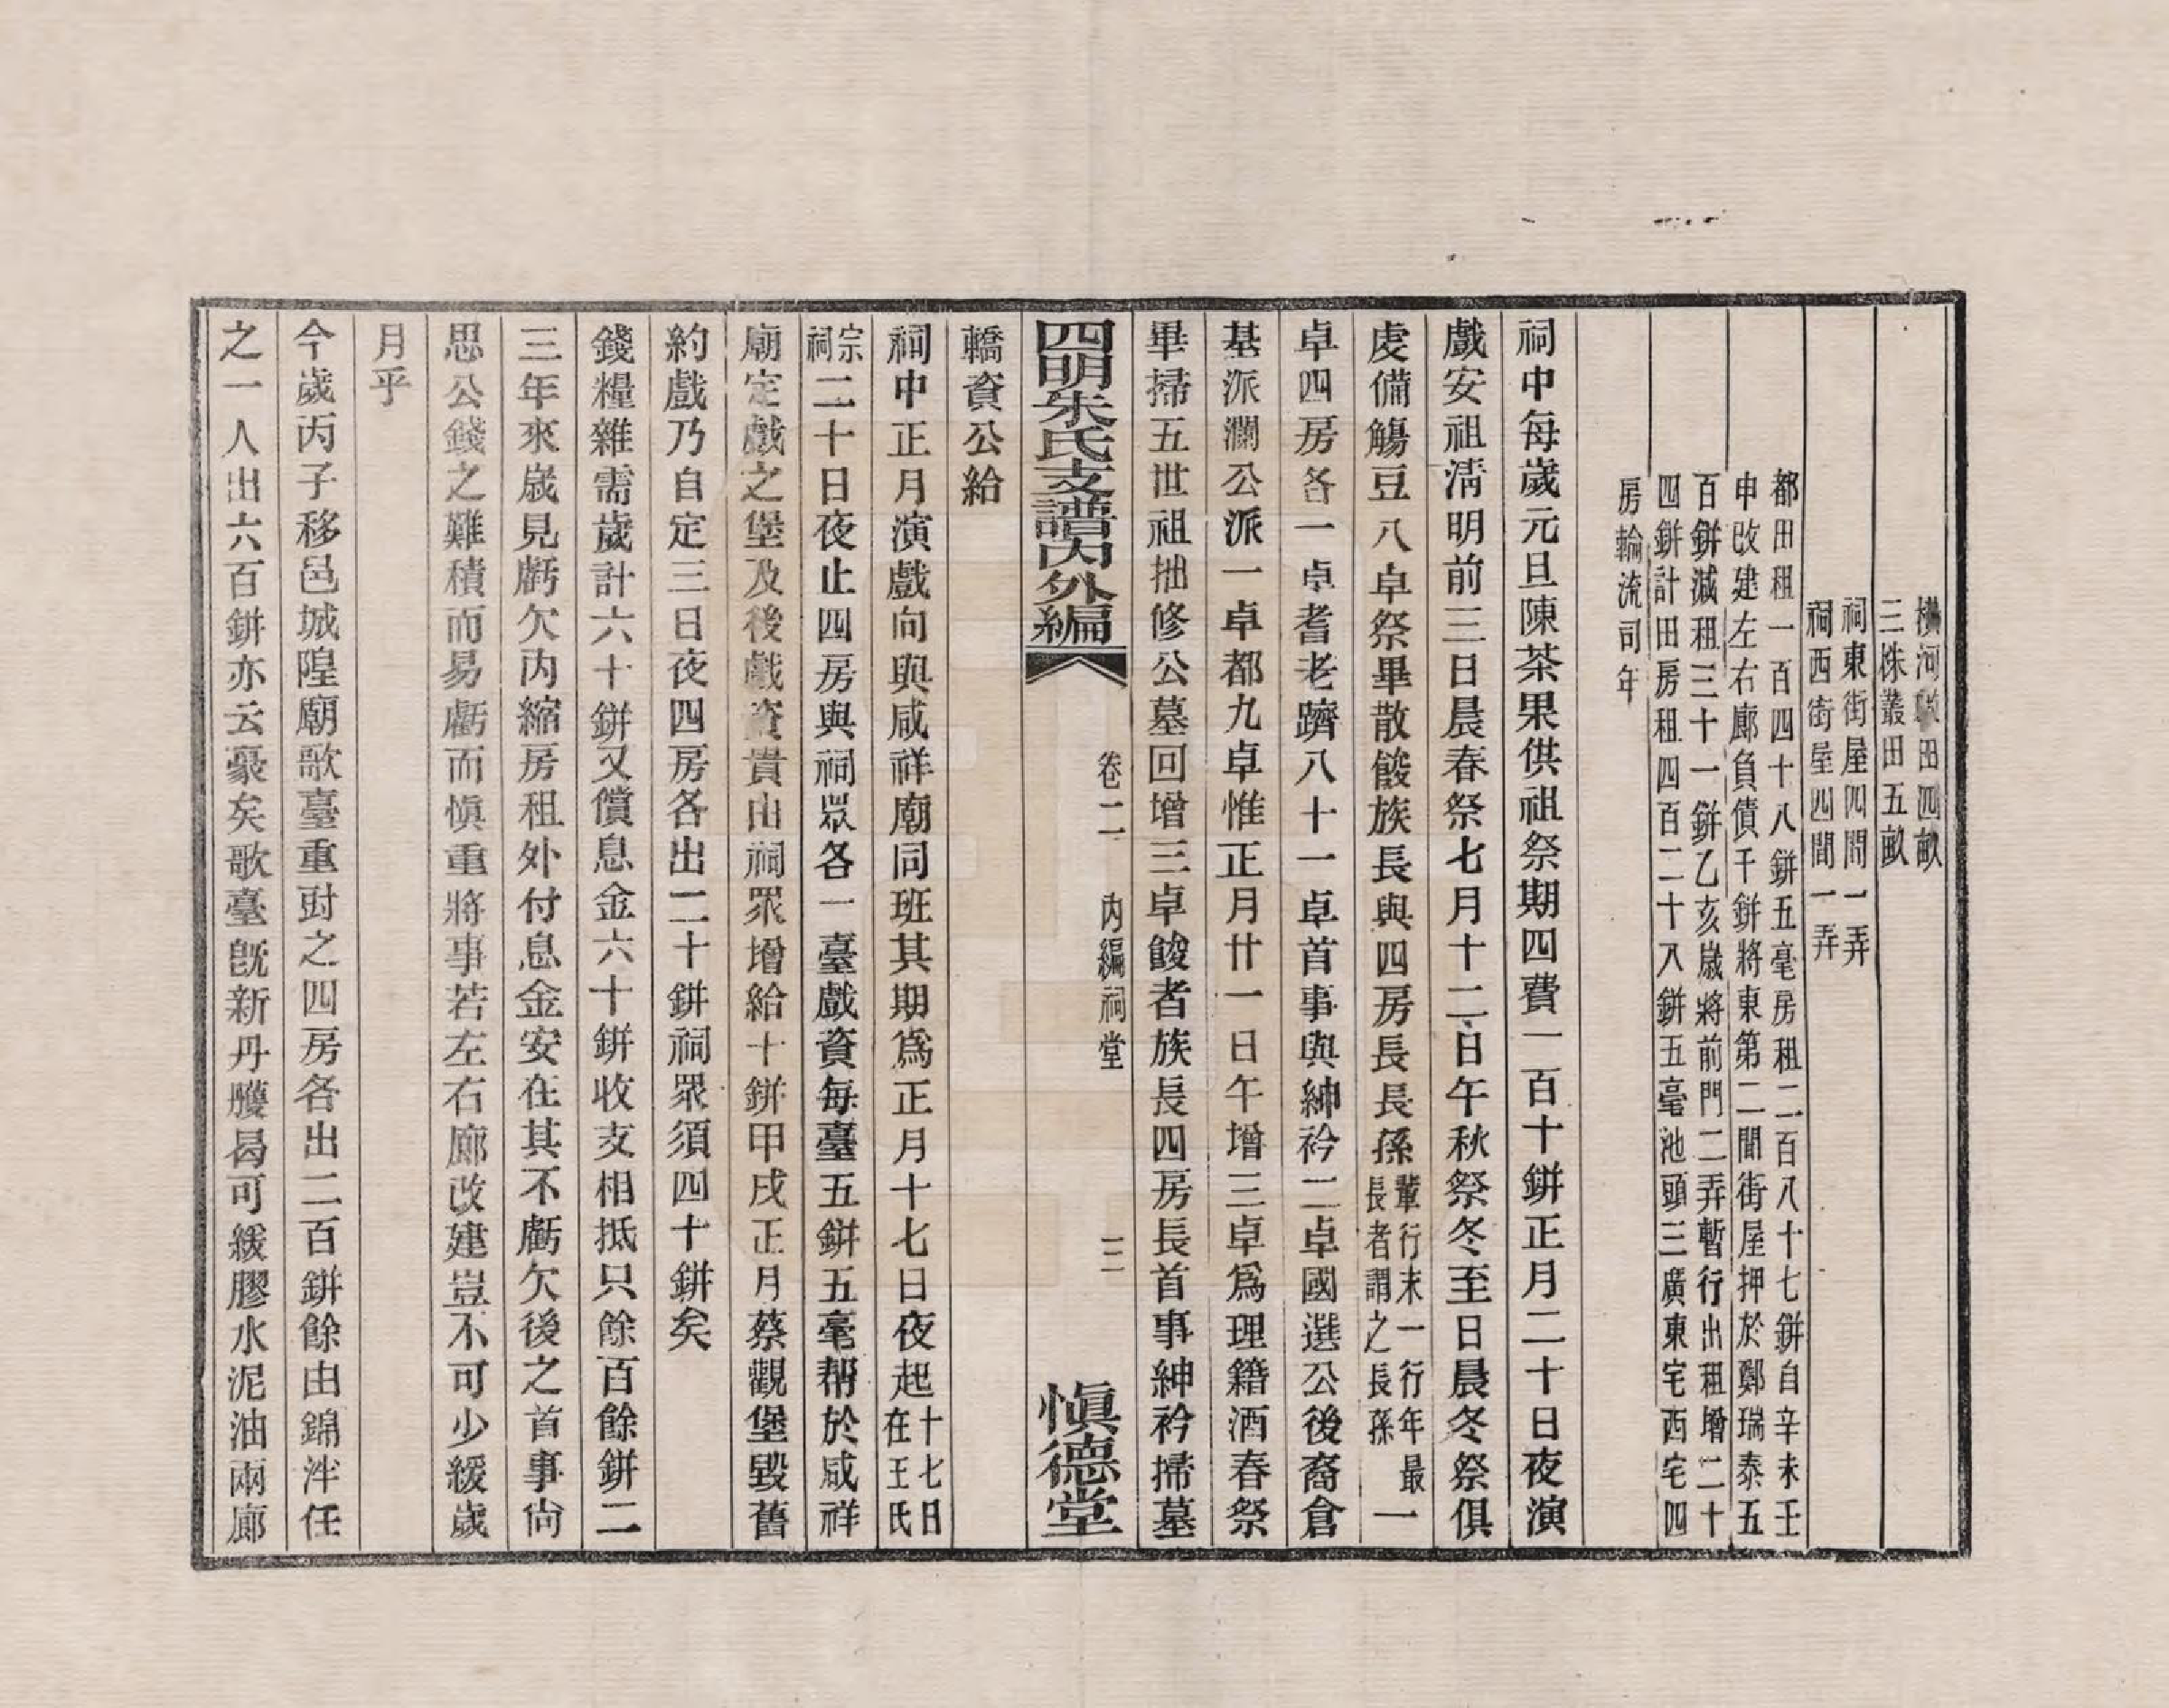 橫河墩田四畝
三株叢田五畝
祠東街屋四間一弄
祠西街屋四間一弄
都田租一百四十八餅五毫房租二百八十七餅自辛未壬
申改建左右廊負債千餅將東第二間街屋押於鄭瑞泰五
百餅減租三十一餅乙亥歲將前門二弄暫行出租增二十
四餅計田房租四百二十八餅五毫池頭三廣東宅西宅四
房輪流司年
祠中每歲元旦陳茶果供祖祭期四費一百十餅正月二十日夜演
戲安祖淸明前三日晨春祭七月十二日午秋祭冬至日晨冬祭俱
虔備觴豆八卓祭畢散餕族長與四房長長孫輩行末一行年最長者謂之長孫一
卓四房各一卓耆老躋八十一卓首事與紳衿二卓國選公後裔倉
基派瀾公派一卓都九卓惟正月廿一日午增三卓爲理籍酒春祭
畢掃五世祖拙修公墓回增三卓餕者族長四房長首事紳衿掃墓
四明朱氏支譜內外編
卷二
內編祠堂
三
愼德堂
轎資公給
祠中正月演戲向與咸祥廟同班其期爲正月十七日夜起十七日在王氏
宗祠二十日夜止四房與祠眾各一臺戲資每臺五餅五毫幇於咸祥
廟定戲之堡及後戲資貴由祠眾增給十餅甲戌正月蔡觀堡毀舊
約戲乃自定三日夜四房各出二十餅祠眾須四十餅矣
錢糧雜需歲計六十餅又償息金六十餅收支相抵只餘百餘餅二
三年來歲見虧欠內縮房租外付息金安在其不虧欠後之首事尙
思公錢之難積而易虧而愼重將事若左右廊改建豈不可少緩歲
月乎
今歲丙子移邑城隍廟歌臺重尌之四房各出二百餅餘由錦泮任
之一人出六百餅亦云豪矣歌臺旣新丹雘曷可緩膠水泥油兩廊